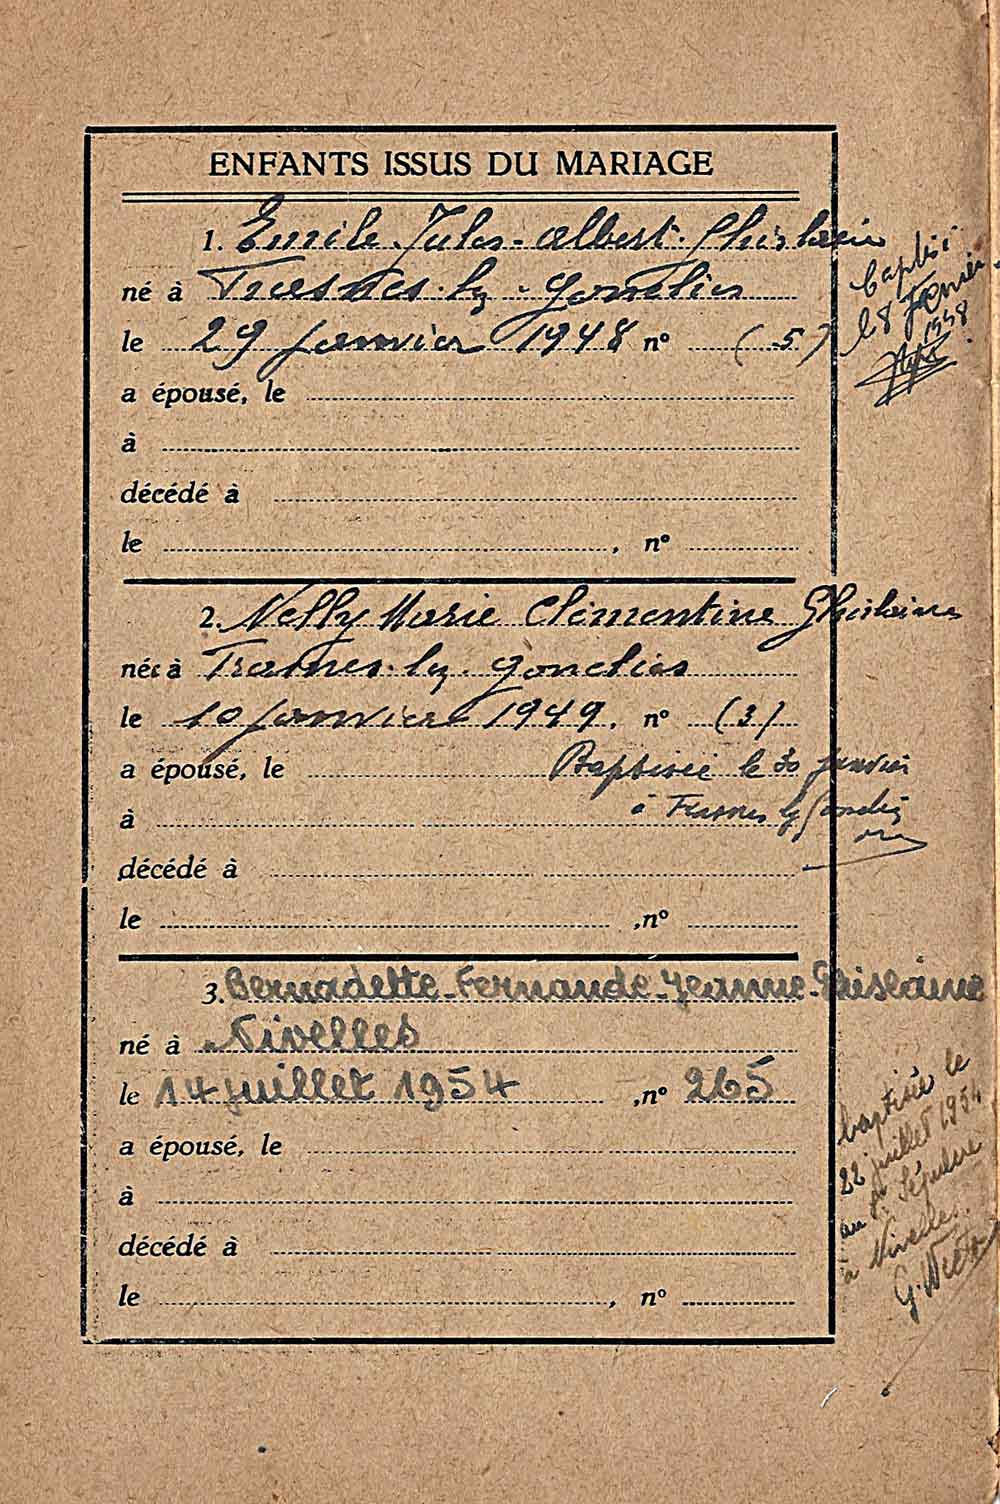 ENFANTS ISSUS DU MARIAGE
1. Emile Jules-Albert-Ghislain
né à Frasnes-lez-Gosselies
le 29 janvier 1948 n° (5)
baptisé
le 8 Février
1948
a épousé, le
à
décédé à
le , n°
2. Nelly Marie Clémentine Ghislaine
née à Frasnes-lez-Gosselies
le 10 janvier 1949, n° (3)
a épousé, le Baptisée le 30 janvier
à à Frasnes lez Gosselies
décédé à
le ,n°
3. Bernadette-Fernande-Jeanne-Ghislaine
né à Nivelles
le 14 juillet 1954 ,n° 265
baptisée le
22 juillet 1954
au St Sépulcre
à Nivelles.
G.
a épousé, le
à
décédé à
le , n°